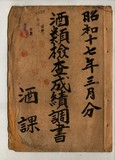 昭和十七年三月分
酒類檢査成績調書
酒課